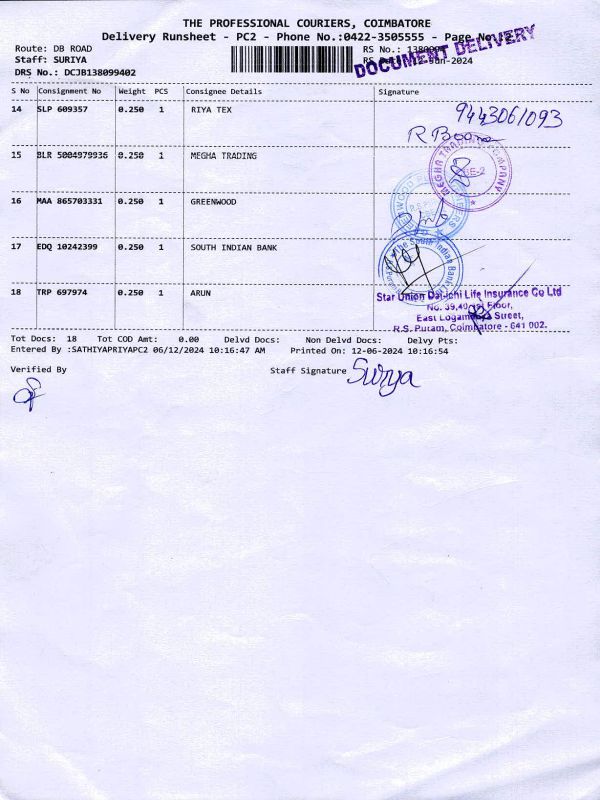 THE PROFESSIONAL COURIERS, COIMBATORE
Delivery Runsheet - PC2 - Phone No.:0422-3505555 - Page No.:2
DOCUMENT DELIVERY
Route: DB ROAD
Staff: SURIYA
DRS No.: DCJB138099402
S No Consignment No Weight PCS Consignee Details Signature
14 SLP 609357 0.250 1 RIYA TEX
9443061093
15 BLR 5004979936 0.250 1 MEGHA TRADING
MEGHA TRADING COMPANY
16 MAA 865703331 0.250 1 GREENWOOD
17 EDQ 10242399 0.250 1 SOUTH INDIAN BANK
The South Indian Bank
18 TRP 697974 0.250 1 ARUN
Star Union Dai-ichi Life Insurance Co Ltd
No. 39,40, Ist Floor,
East Street,
R.S. Puram, Coimbatore - 641 002.
Tot Docs: 18 Tot COD Amt: 0.00 Delvd Docs: Non Delvd Docs: Delvy Pts:
Entered By :SATHIYAPRIYAPC2 06/12/2024 10:16:47 AM Printed On: 12-06-2024 10:16:54
Verified By
Staff Signature Surya